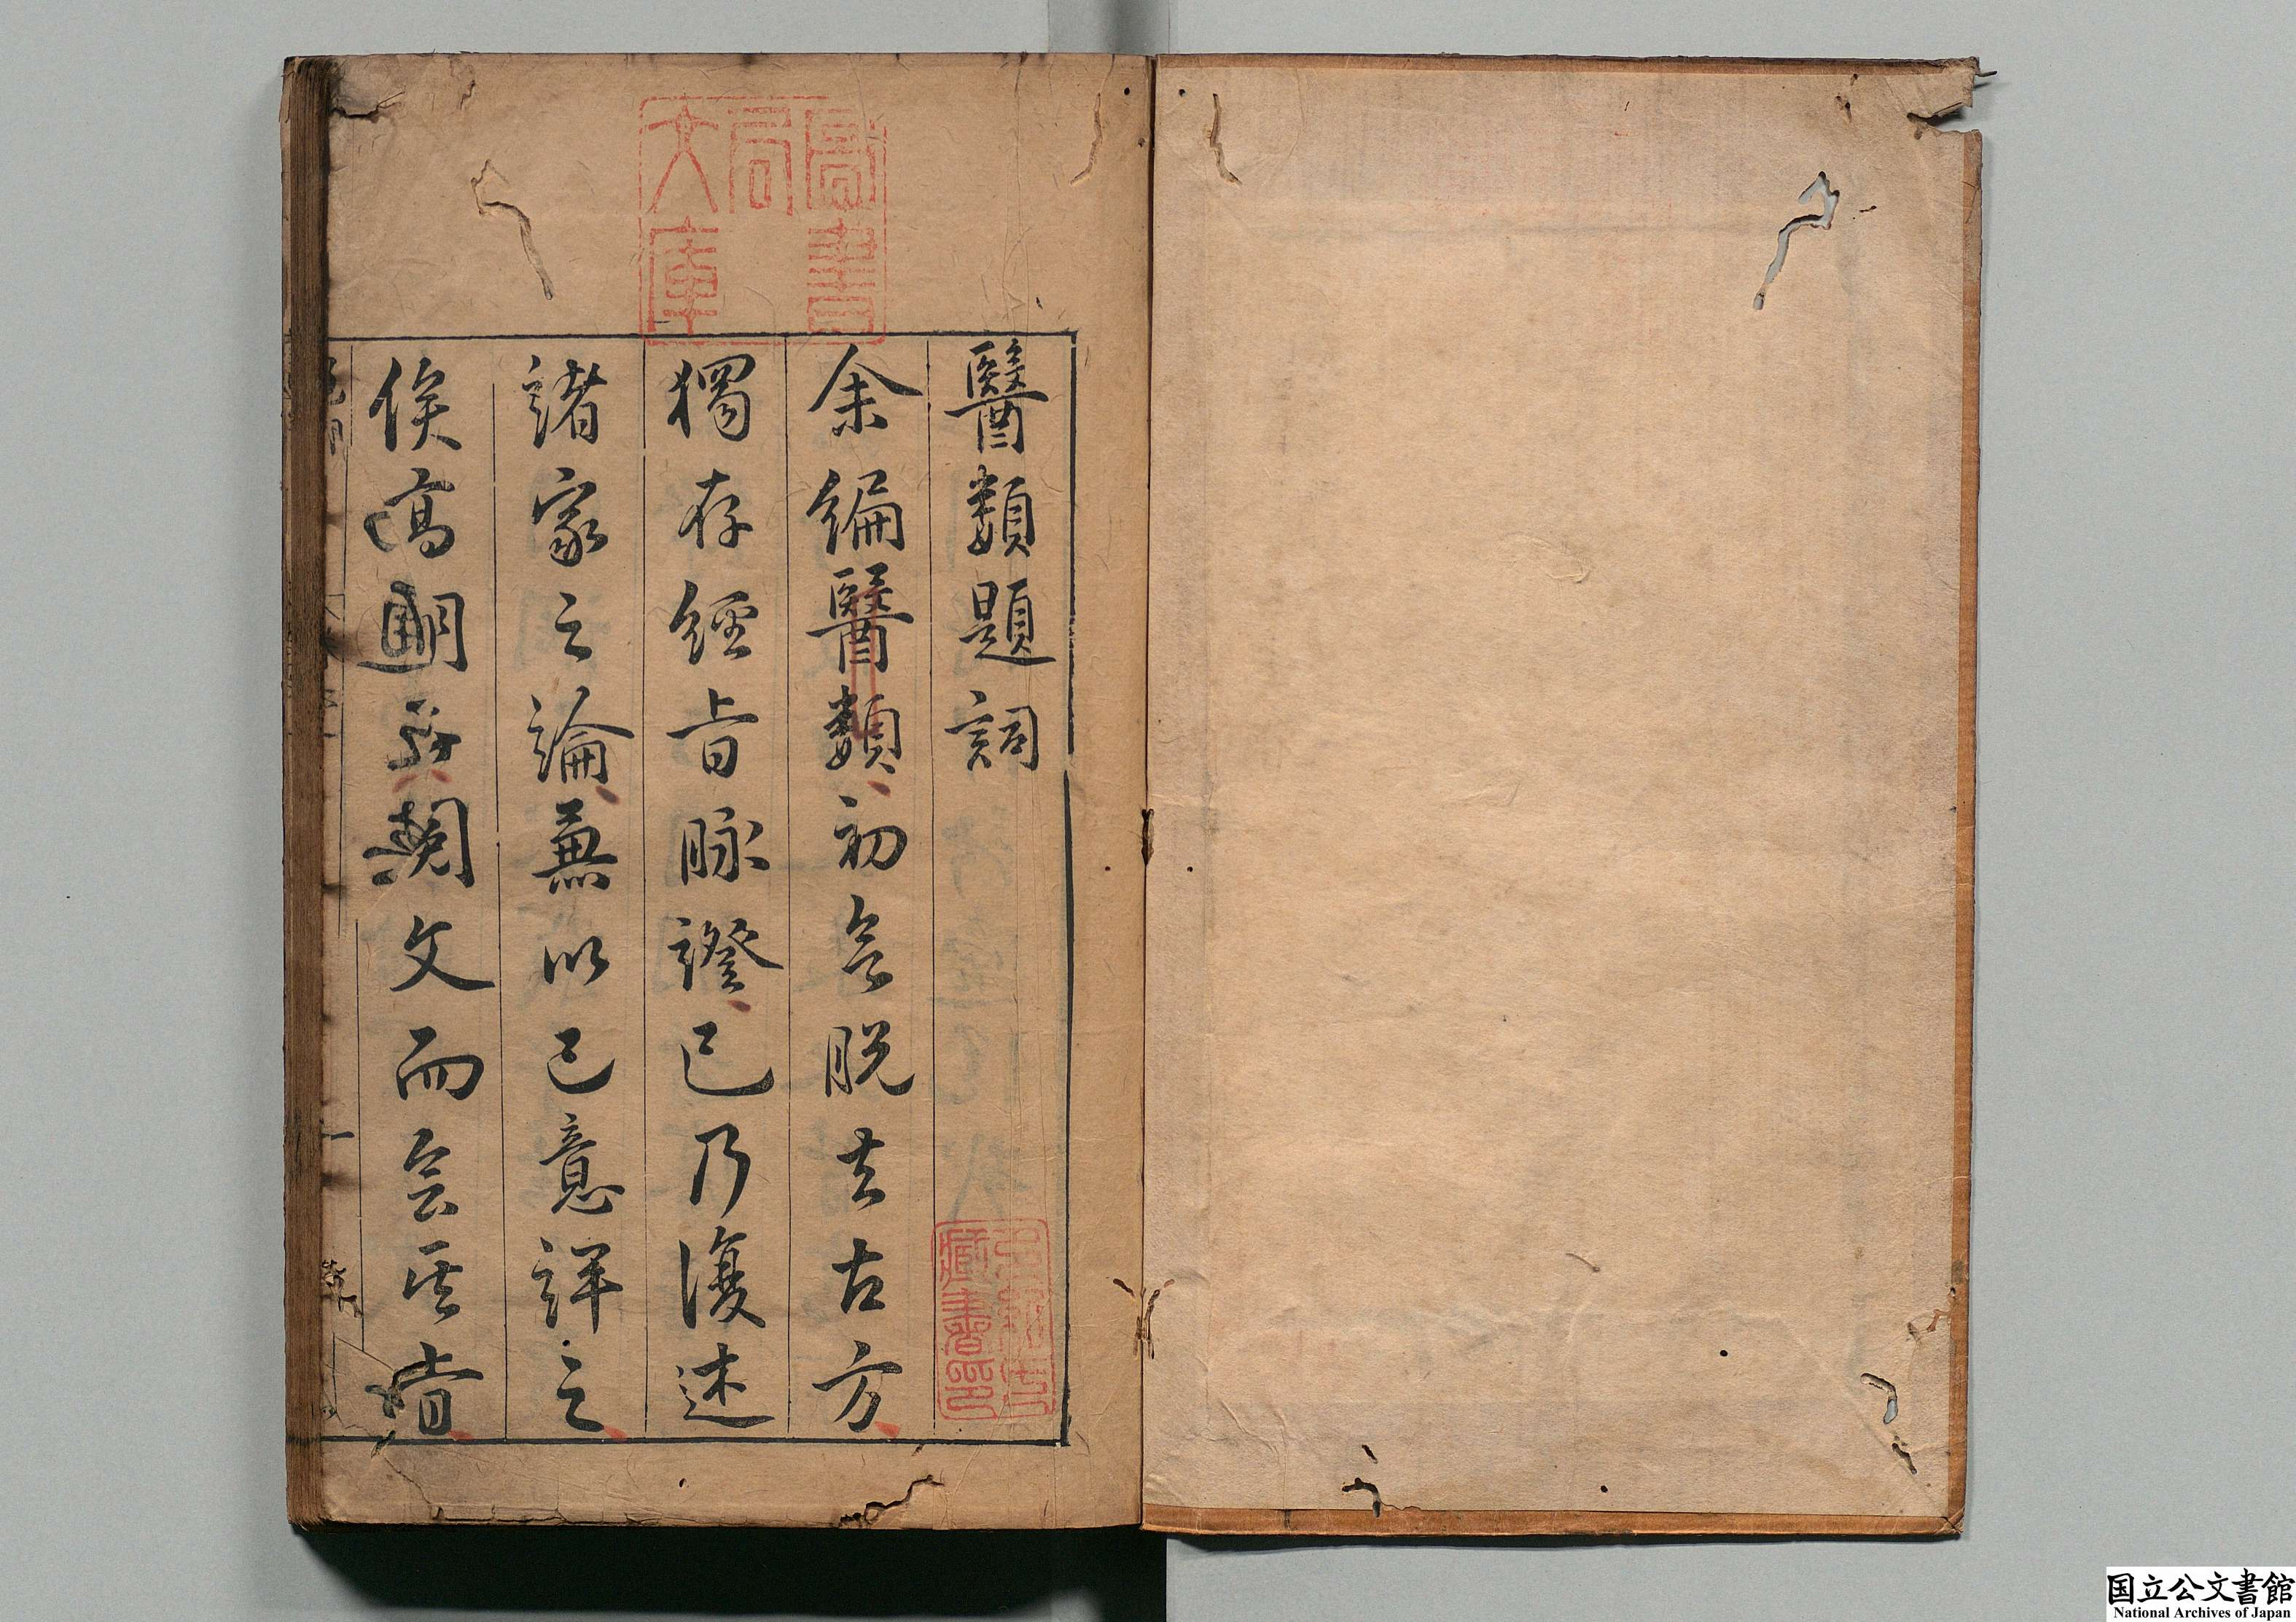 圖書
局
文庫
醫類題詞
余編醫類初脫去古方
獨存經旨脉證已乃復述
諸家之論兼以己意詳之
俟高明文而会其旨
多紀氏
藏書印
国立公文書館
National Archives of Japan